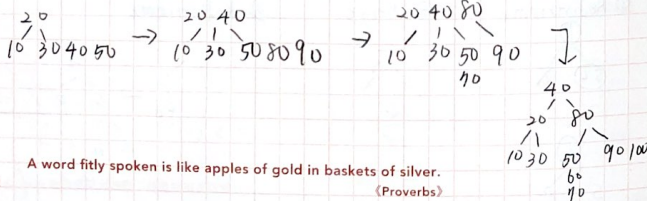 20 20 40 20 40 80
10 30 40 50 → 10 30 50 80 90 → 10 30 50 90
70
40
20 80
10 30 50 90 100
60
70
A word fitly spoken is like apples of gold in baskets of silver.
《Proverbs》